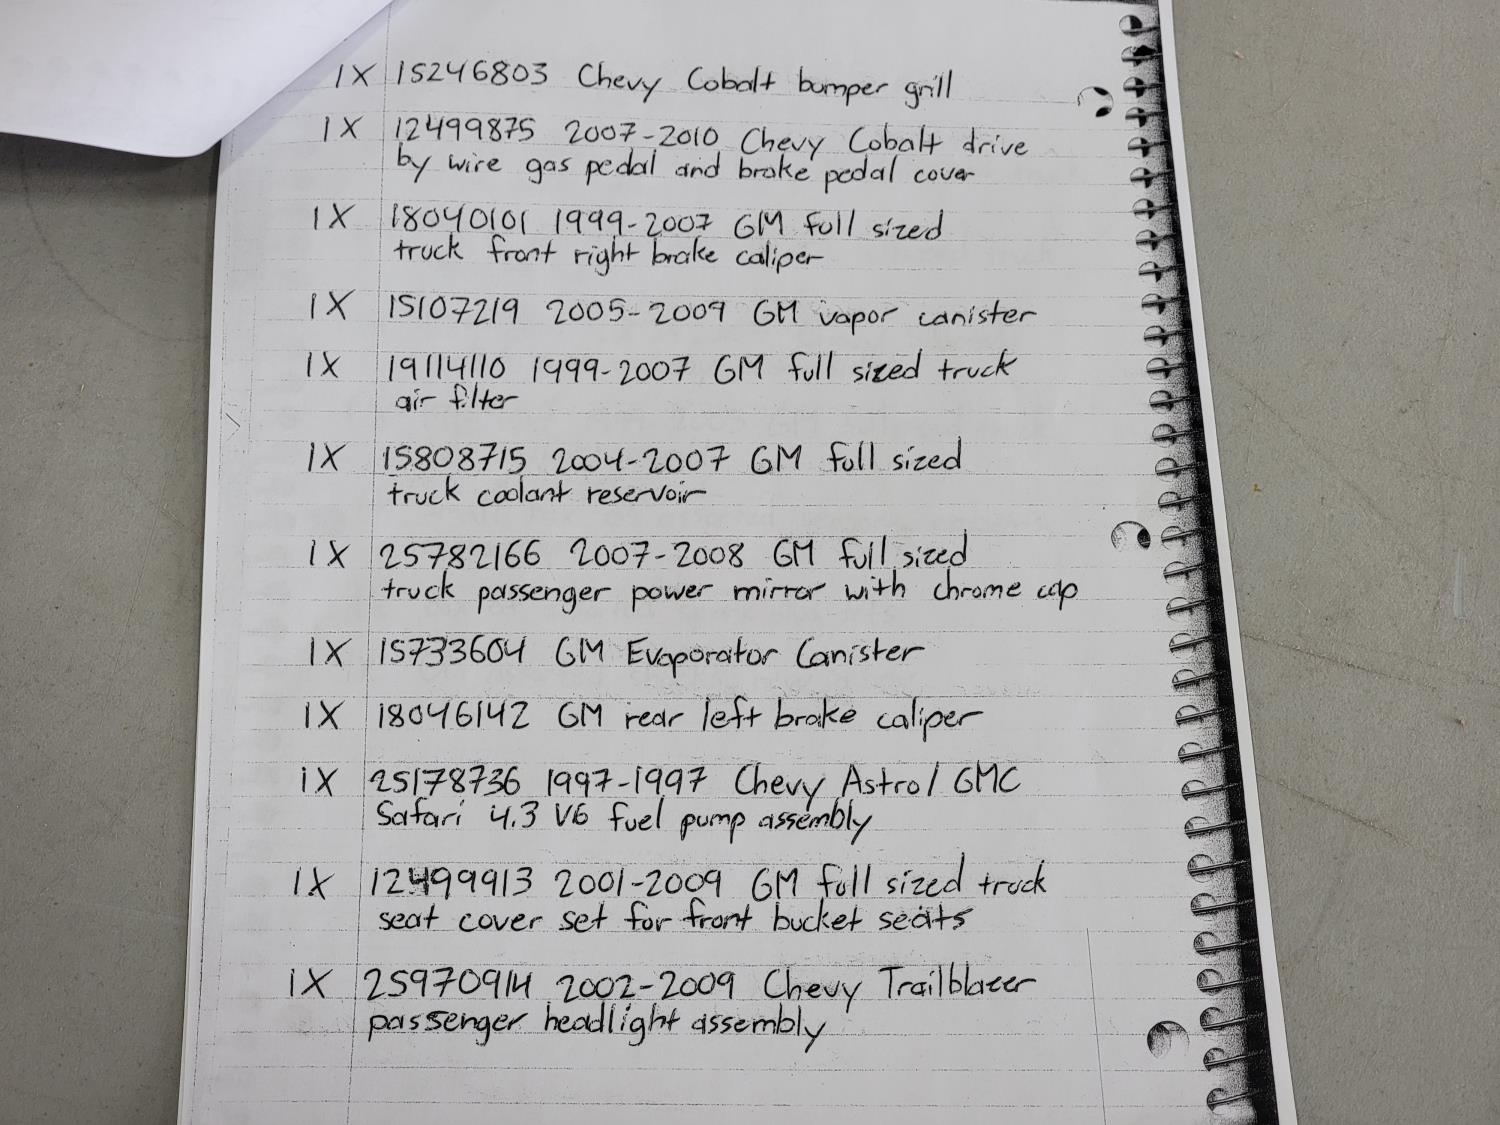 1X 15246803 Chevy Cobalt bumper grill
1X 12499875 2007-2010 Chevy Cobalt drive
by wire gas pedal and brake pedal cover
1X 18040101 1999-2007 GM full sized
truck front right brake caliper
1X 15107219 2005-2009 GM vapor canister
1X 19114110 1999-2007 GM full sized truck
air filter
1X 15808715 2004-2007 GM full sized
truck coolant reservoir
1X 25782166 2007-2008 GM full sized
truck passenger power mirror with chrome cap
1X 15733604 GM Evaporator Canister
1X 18046142 GM rear left brake caliper
1X 25178736 1997-1997 Chevy Astro/GMC
Safari 4.3 V6 fuel pump assembly
1X 12499913 2001-2009 GM full sized truck
seat cover set for front bucket seats
1X 25970914 2002-2009 Chevy Trailblazer
passenger headlight assembly